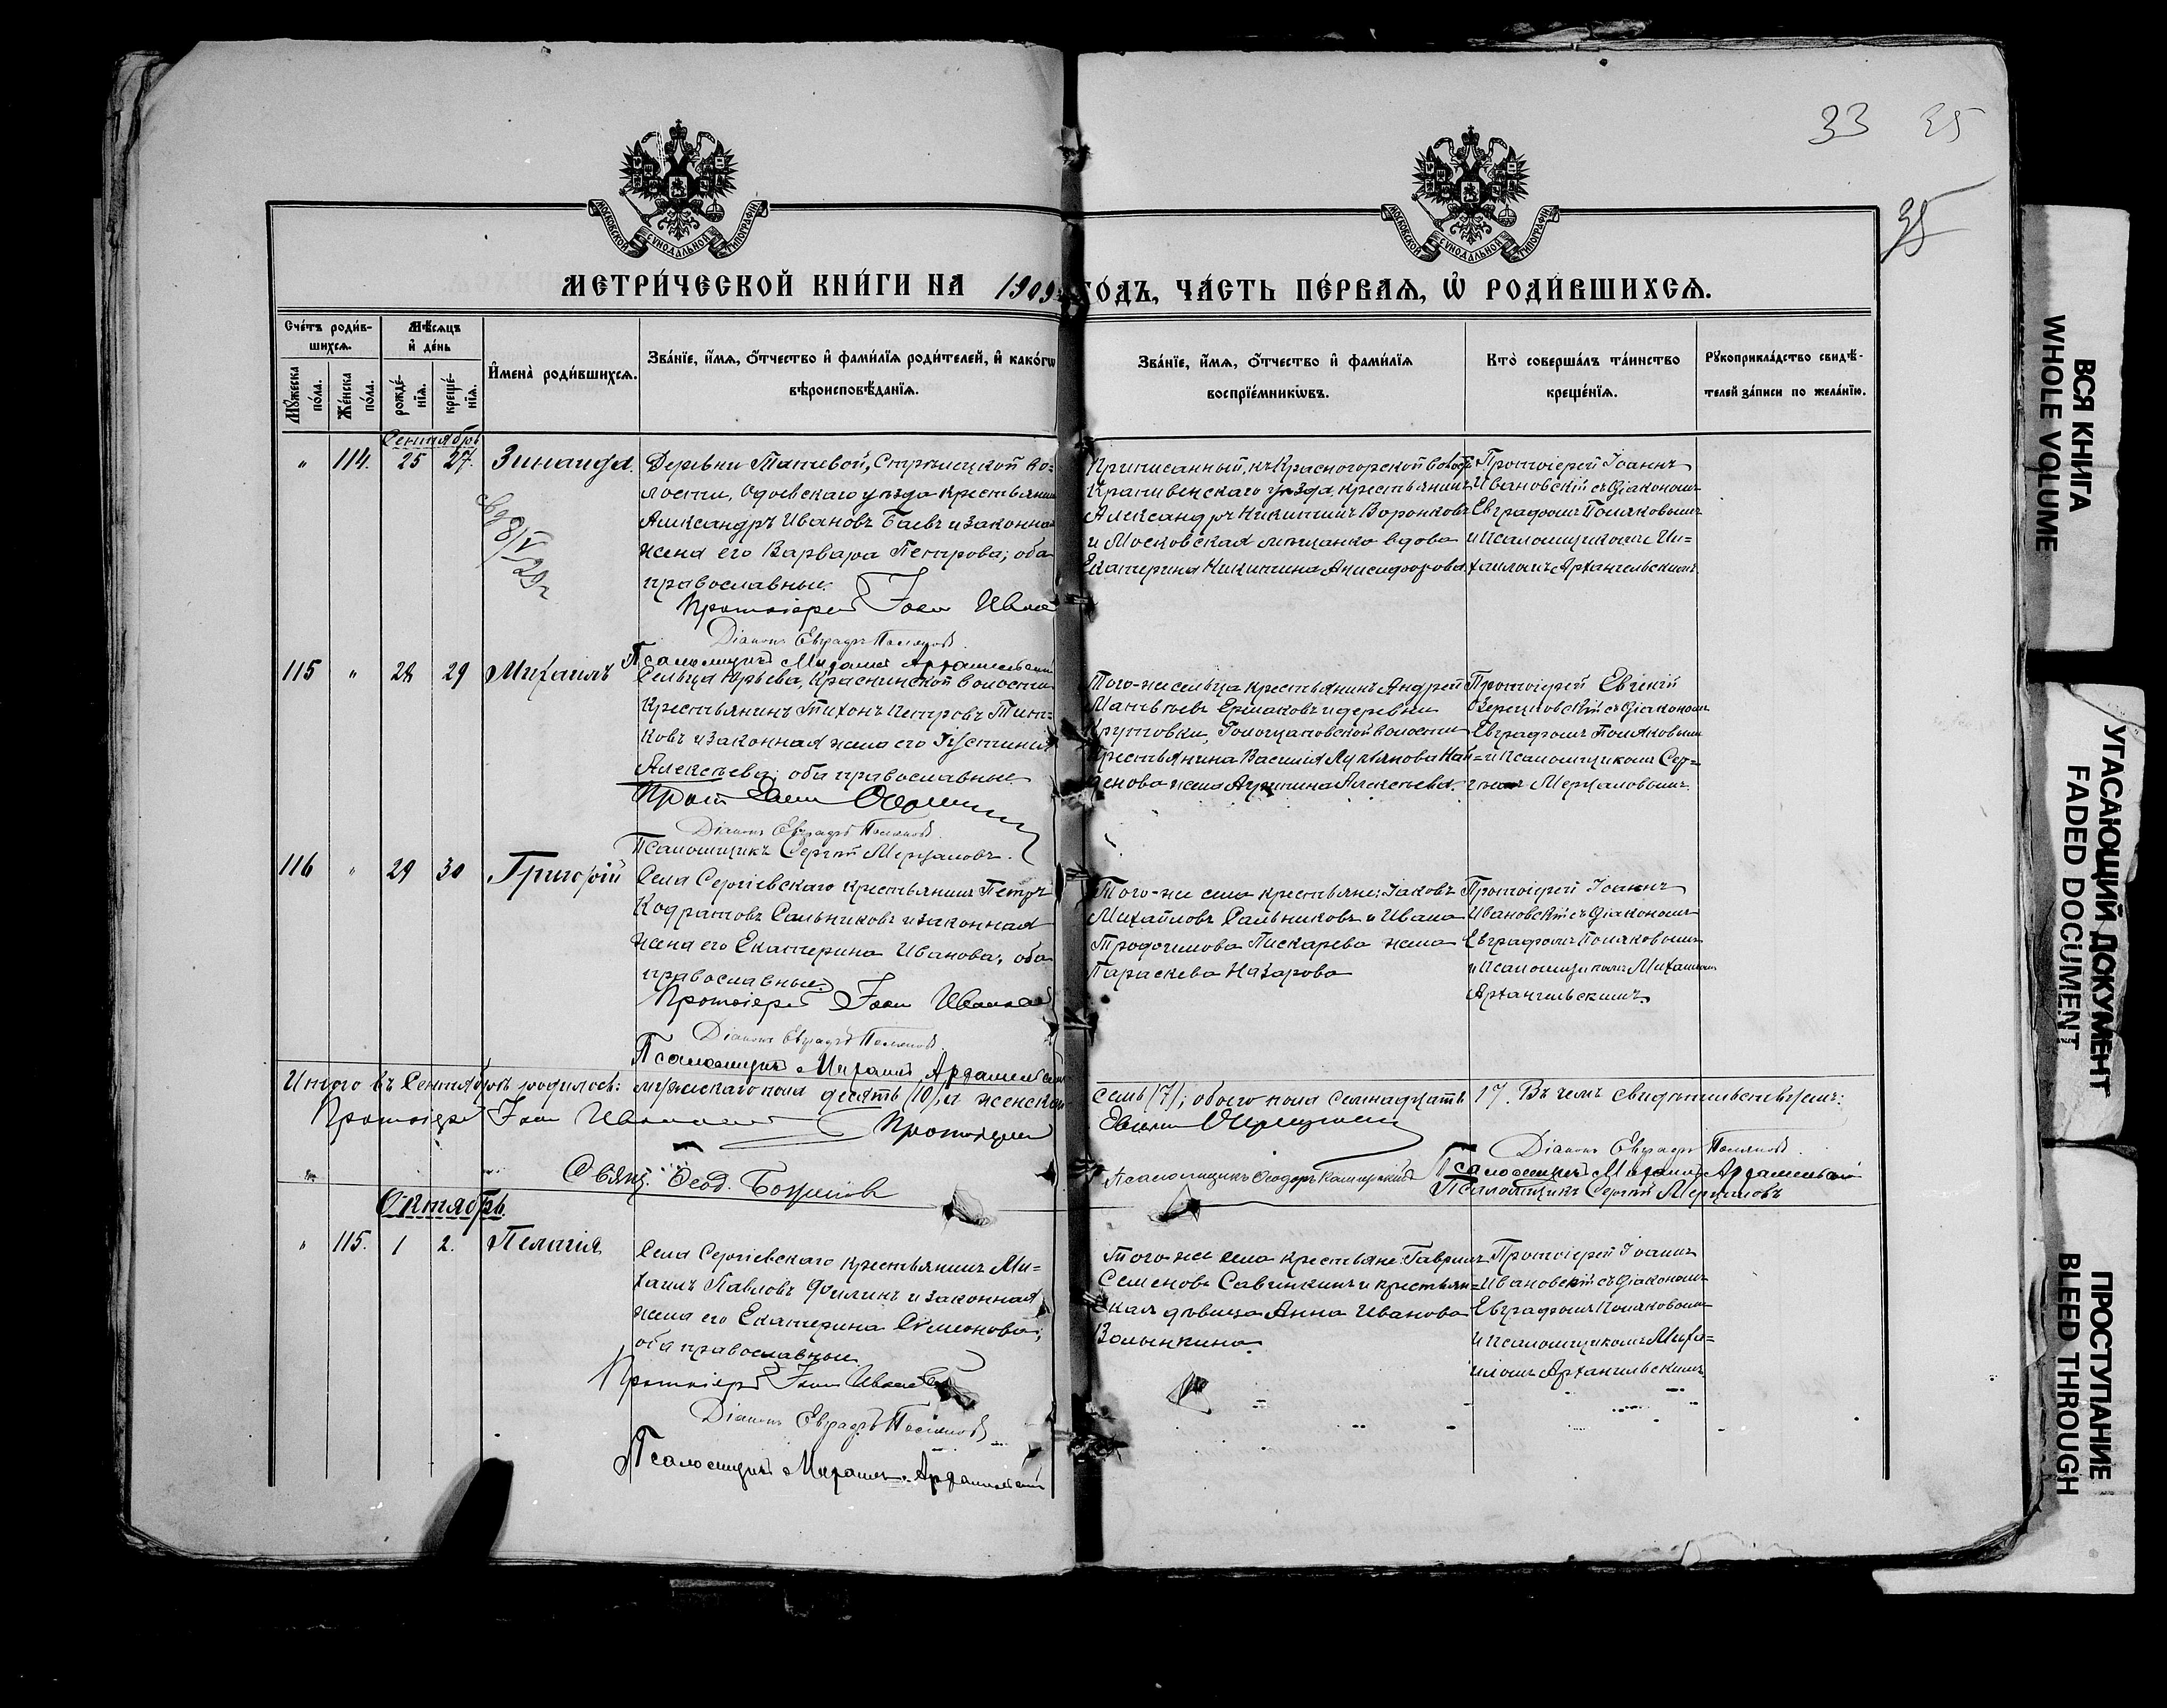 33 35
35
МОСКОВСКОЙ СУНОДАЛЬНОЙ ТИПОГРАФІИ
МОСКОВСКОЙ СУНОДАЛЬНОЙ ТИПОГРАФІИ
МЕТРИ́ЧЕСКОЙ КНИ́ГИ НА 1909 ГО́ДЪ, ЧА́СТЬ ПЕ́РВАѦ, Ѡ҆ РОДИ́ВШИХСѦ.
Сче́тъ роди́в-
шихсѧ.
Мꙋ́жеска по́ла.
Же́нска по́ла.
Мѣ́сѧцъ
и҆ де́нь
рожде́-
нїѧ.
креще́-
нїѧ.
И҆мена̀ роди́вшихсѧ.
Зва́нїе, и҆́мѧ, ѻ҆́тчество и҆ фами́лїѧ роди́телей, и҆ како́гѡ
вѣроисповѣ́данїѧ.
Зва́нїе, и҆́мѧ, ѻ҆́тчество и҆ фами́лїѧ
воспрїе́мникѡвъ.
Кто̀ соверша́лъ та́инство
креще́нїѧ.
Рꙋкоприкла́дство свидѣ́-
телей за́писи по жела́нїю.
Сентябрь
" 114. 25 27. Зинаида.
Деревни Татевой, Стрѣлецкой во-
лости, Одоевскаго уѣзда крестьянинъ
Александръ Ивановъ Баевъ и законная
жена его Варвара Петрова; оба
православные.
Протоіерей Іоан Ивано
Діаконъ Евграфъ Поляковъ
Псаломщикъ Михаилъ Архангельскій
Приписанный къ Красногорской волос.
Крапивенскаго уѣзда, крестьянинъ
Александръ Никитинъ Воронковъ
и Московская мѣщанка вдова
Екатерина Никитина Анисифорова.
Протоіерей Іоаннъ
Ивановскій съ діакономъ
Евграфомъ Поляковымъ
и псаломщикомъ Ми-
хаиломъ Архангельскимъ.
115 " 28 29 Михаилъ
Сельца Юрьева, Краснинской волости
крестьянинъ Тихонъ Петровъ Тит-
ковъ и законная жена его Іустинія
Алексѣева; оба православные
Діаконъ Евграфъ Поляковъ.
Псаломщикъ Сергій Мерцаловъ.
Того-же сельца крестьянинъ Андрей
Матвѣевъ Ермаковъ и деревни
Крутовки, Голощаповской волости
крестьянина Василія Лукьянова Най-
денова жена Агрипина Алексѣева.
Протоіерей Евгеній
Озерецковскій съ діакономъ
Евграфомъ Поляковымъ
и псаломщикомъ Сер-
гіемъ Мерцаловымъ.
116 " 29 30 Григорій
Села Сергіевскаго крестьянинъ Петръ
Кодратовъ Сальниковъ и законная
жена его Екатерина Иванова; оба
православные.
Протоіерей Іоан Ивано
Діаконъ Евграфъ Поляковъ.
Псаломщикъ Михаилъ Архангельскій
Того-же села крестьяне: Іаковъ
Михайловъ Сальниковъ и Ивана
Трофимова Пискарева жена
Параскева Назарова
Протоіерей Іоаннъ
Ивановскій съ діакономъ
Евграфомъ Поляковымъ
и псаломщикомъ Михаиломъ
Архангельскимъ.
Итого въ Сентябрѣ родилось: мужескаго пола десять (10), а женскаго семь (7); обоего пола семнадцать 17. Въ чемъ свидѣтельствуемъ:
Протоіерей Іоан Протоіерей
Діаконъ Евграфъ Поляковъ.
Свящ. Ѳеод. Псаломщикъ Ѳеодоръ Каширскій Псаломщикъ Михаилъ Архангельскій
Псаломщикъ Сергій Мерцаловъ
Октябрь.
" 115. 1 2. Пелагія
Села Сергіевскаго крестьянинъ Ми-
хаилъ Павловъ Филинъ и законная
жена его Екатерина Симеонова;
оба православные.
Протоіерей Іоан
Діаконъ Евграфъ Поляковъ
Псаломщикъ Михаилъ Архангельскій
Того-же села крестьяне: Гавриилъ
Семеновъ Савинкинъ и крестьян-
ская дѣвица Анна Иванова
Волынкина.
Протоіерей Іоаннъ
Ивановскій съ діакономъ
Евграфомъ Поляковымъ
и псаломщикомъ Миха-
иломъ Архангельскимъ.
ВСЯ КНИГА
WHOLE VOLUME
УГАСАЮЩИЙ ДОКУМЕНТ
FADED DOCUMENT
ПРОСТУПАНИЕ
BLEED THROUGH